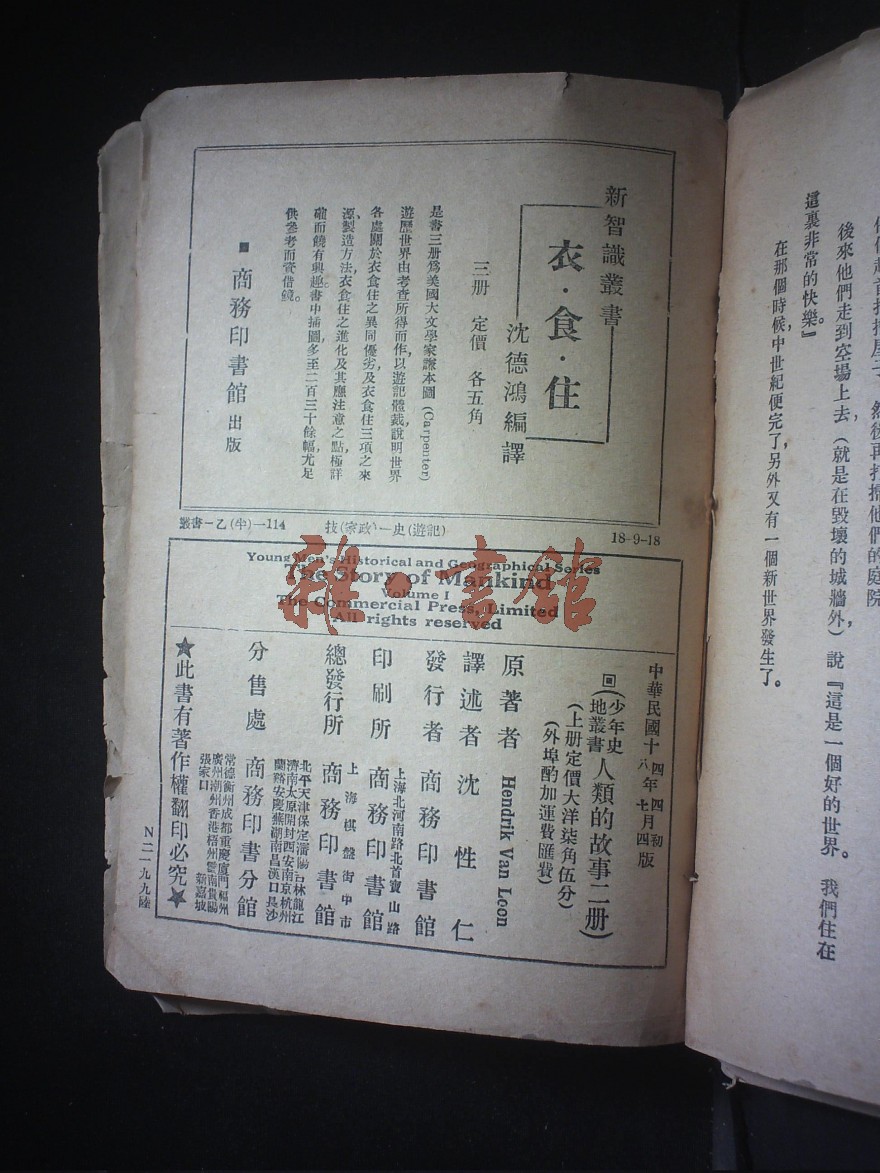 後來他們走到空場上去(就是在毀壞的城牆外)說『這是一個好的世界。我們住在
這裏非常的快樂』
在那個時候,中世紀便完了另外又有一個新世界發生了。
新智識叢書
衣·食·住
沈德鴻編譯
三册 定價 各五角
是書三册爲美國大文學家謙本圖(Carpenter)
遊歷世界由考查所得而作,以遊記體裁,說明世界
各處關於衣食住之異同優劣及衣食住三項之來
源、製造方法,衣食住之進化及其應注意之點,極詳
確而饒有興趣。書中插圖,多至二百三十餘幅,尤足
供參考而資借鏡。
■ 商務印書館 出版
叢書-乙(半)-114
技(家政)-史(遊記)
18-9-18
Young Men's Historical and Geographical Series
The Story of Mankind
Volume I
The Commercial Press, Limited
All rights reserved
雜·書館
中華民國十四年四月初版
八年七月四版
(少年史地叢書)人類的故事二册
(上册定價大洋柒角伍分)
(外埠酌加運費匯費)
原著者 Hendrik Van Loon
譯述者 沈性仁
發行者 商務印書館
上海北河南路北首寶山路
印刷所 商務印書館
上海棋盤街中市
總發行所 商務印書館
北平天津保定瀋陽吉林龍江
濟南太原開封西安南京杭州
蘭谿安慶蕪湖南昌漢口長沙
分售處 商務印書分館
常德衡州成都重慶廈門福州
廣州潮州香港梧州雲南貴陽
張家口 新嘉坡
★此書有著作權翻印必究★
N二一九九陸